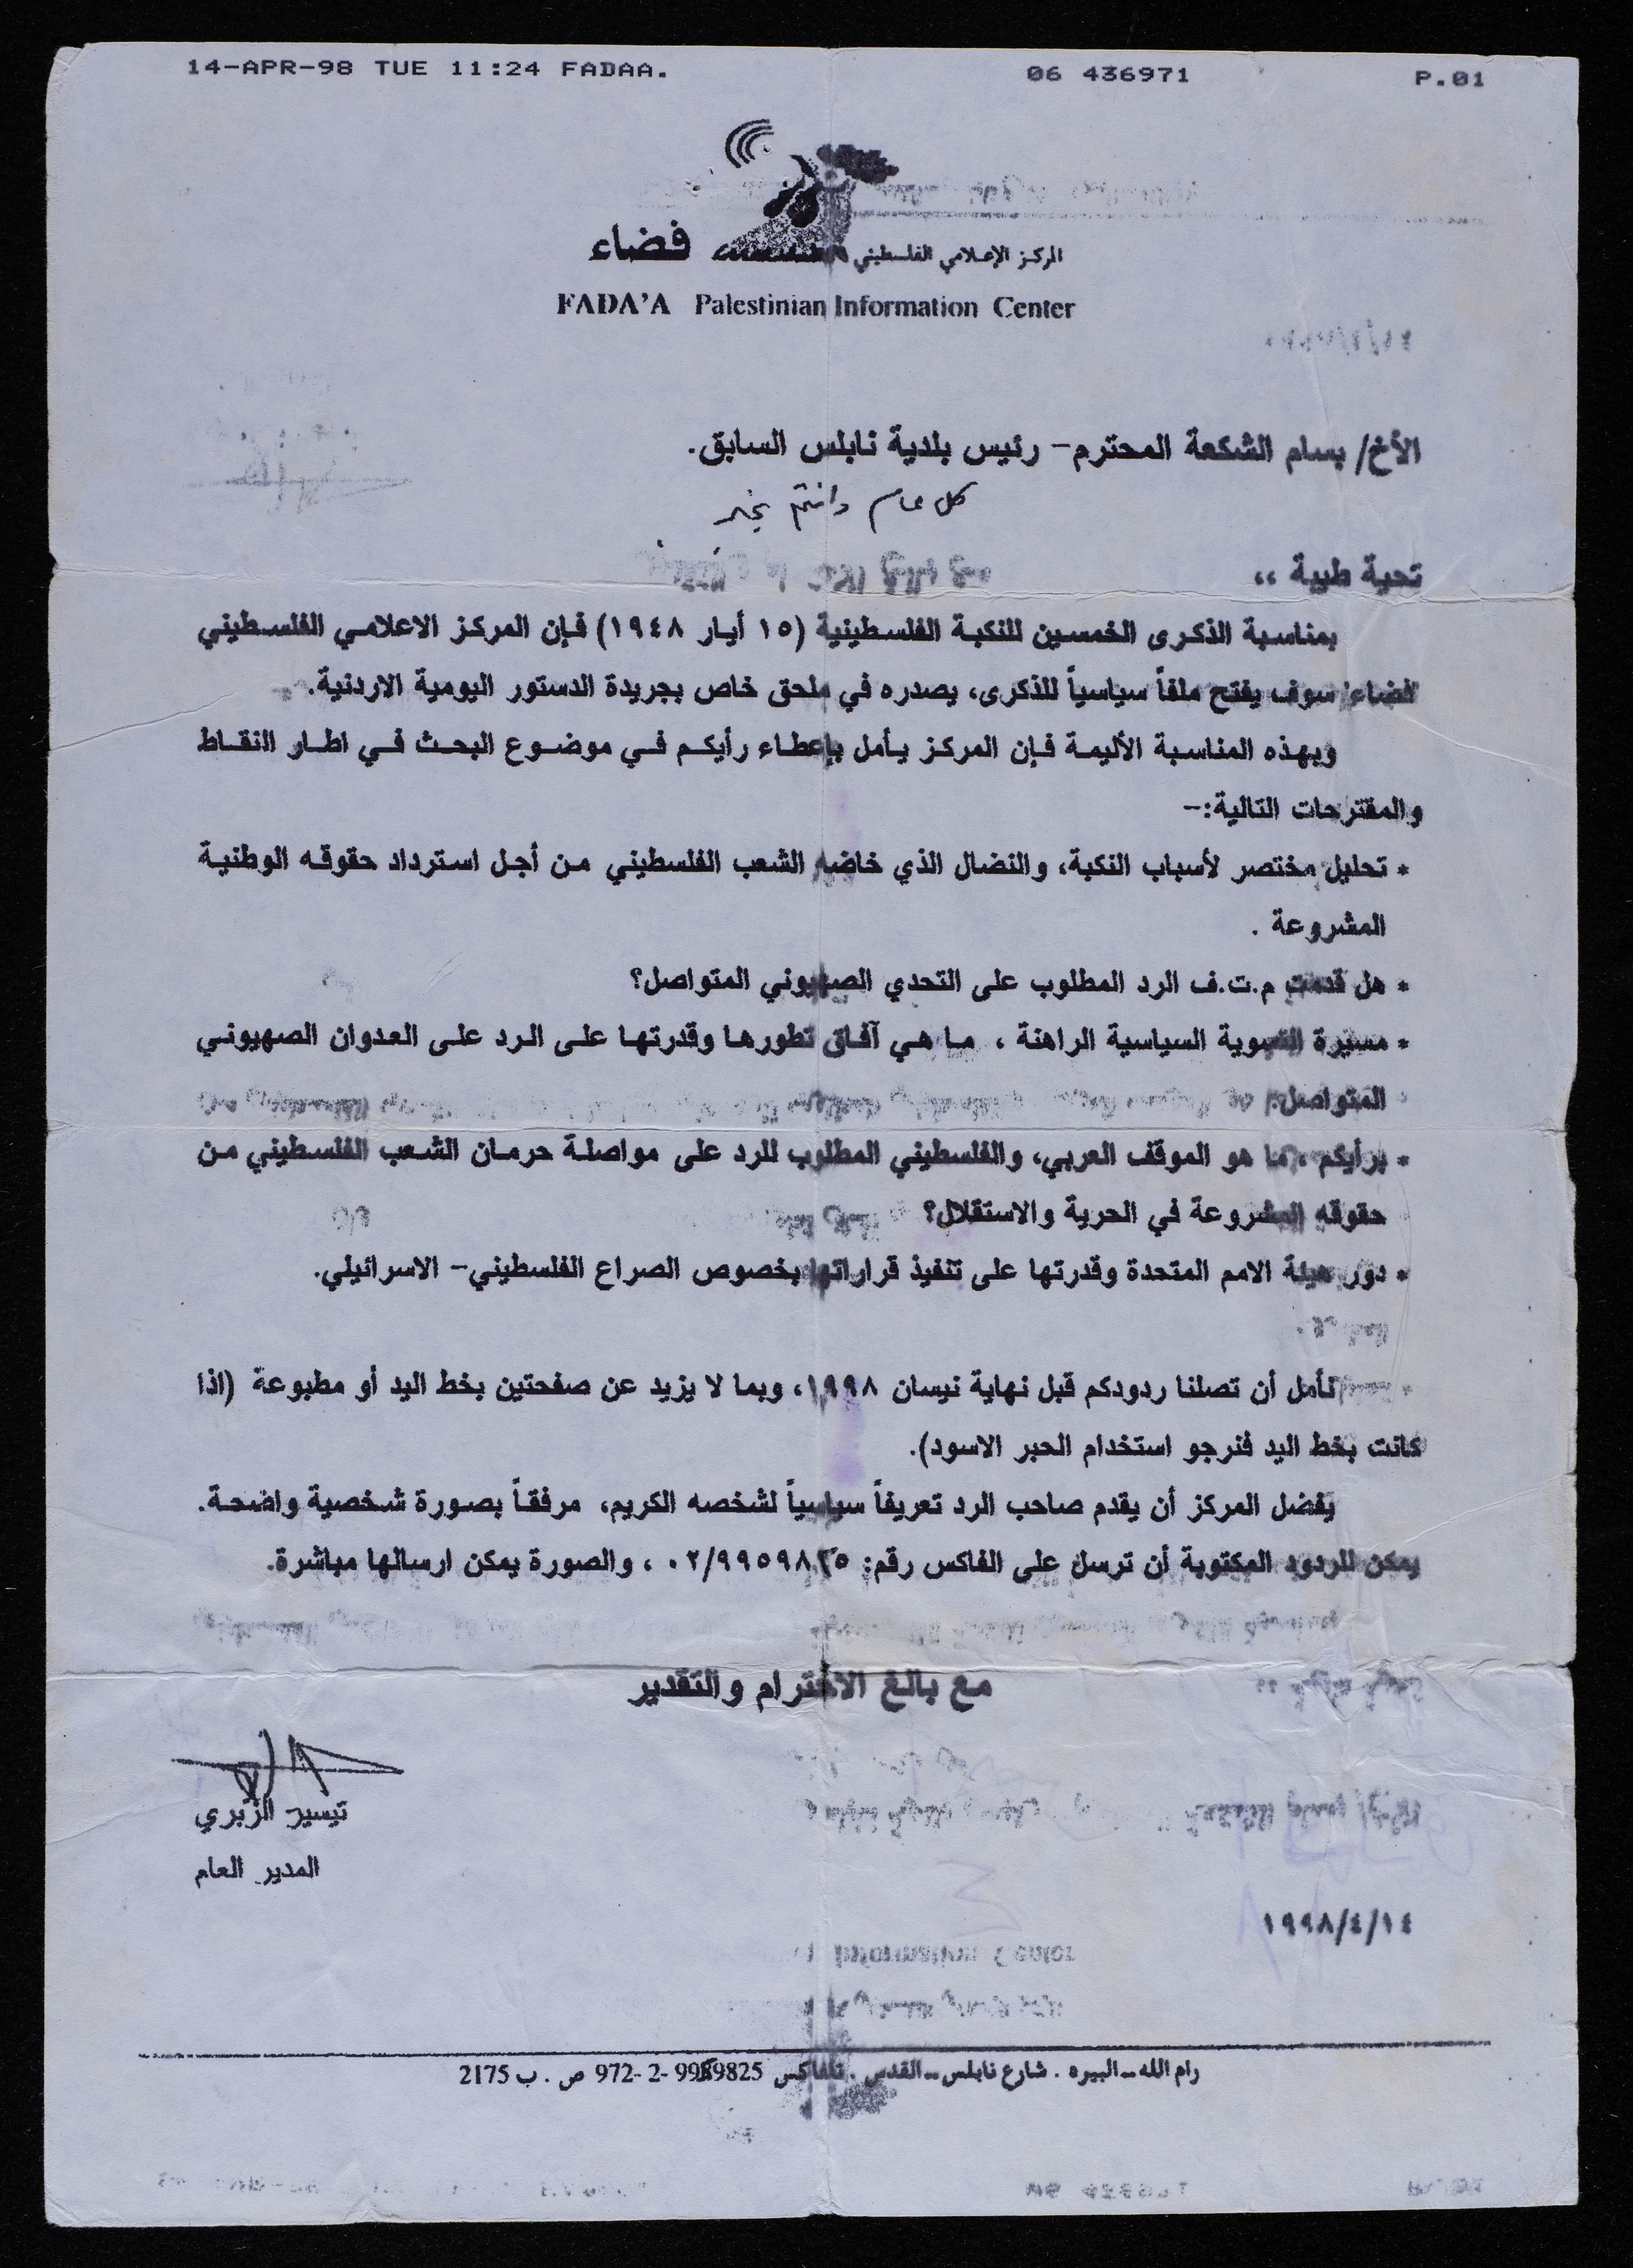 14-APR-98 TUE 11:24 FADAA. 06 436971 P.01
المركز الإعلامي الفلسطيني فضاء
FADA'A Palestinian Information Center
الأخ/ بسام الشكعة المحترم- رئيس بلدية نابلس السابق.
كل عام وانتم بخير
تحية طيبة ،،
بمناسبة الذكرى الخمسين للنكبة الفلسطينية (١٥ أيار ١٩٤٨) فإن المركز الاعلامي الفلسطيني
فضاء سوف يفتح ملفاً سياسياً للذكرى، يصدره في ملحق خاص بجريدة الدستور اليومية الاردنية.
وبهذه المناسبة الأليمة فإن المركز يأمل بإعطاء رأيكم في موضوع البحث في اطار النقاط
والمقترحات التالية:-
* تحليل مختصر لأسباب النكبة، والنضال الذي خاضه الشعب الفلسطيني من أجل استرداد حقوقه الوطنية
المشروعة .
* هل قدمت م.ت.ف الرد المطلوب على التحدي الصهيوني المتواصل؟
* مسيرة التسوية السياسية الراهنة ، ما هي آفاق تطورها وقدرتها على الرد على العدوان الصهيوني
المتواصل.
* برأيكم ، ما هو الموقف العربي، والفلسطيني المطلوب للرد على مواصلة حرمان الشعب الفلسطيني من
حقوقه المشروعة في الحرية والاستقلال؟
* دور هيئة الامم المتحدة وقدرتها على تنفيذ قراراتها بخصوص الصراع الفلسطيني- الاسرائيلي.
نأمل أن تصلنا ردودكم قبل نهاية نيسان ١٩٩٨، وبما لا يزيد عن صفحتين بخط اليد أو مطبوعة (اذا
كانت بخط اليد فنرجو استخدام الحبر الاسود).
يفضل المركز أن يقدم صاحب الرد تعريفاً سياسياً لشخصه الكريم، مرفقاً بصورة شخصية واضحة.
يمكن للردود المكتوبة أن ترسل على الفاكس رقم: ٠٢/٩٩٥٩٨٢٥ ، والصورة يمكن ارسالها مباشرة.
مع بالغ الاحترام والتقدير
تيسير الزبري
المدير العام
١٩٩٨/٤/١٤
رام الله - البيره . شارع نابلس - القدس . تلفاكس 972-2-9959825 ص . ب 2175